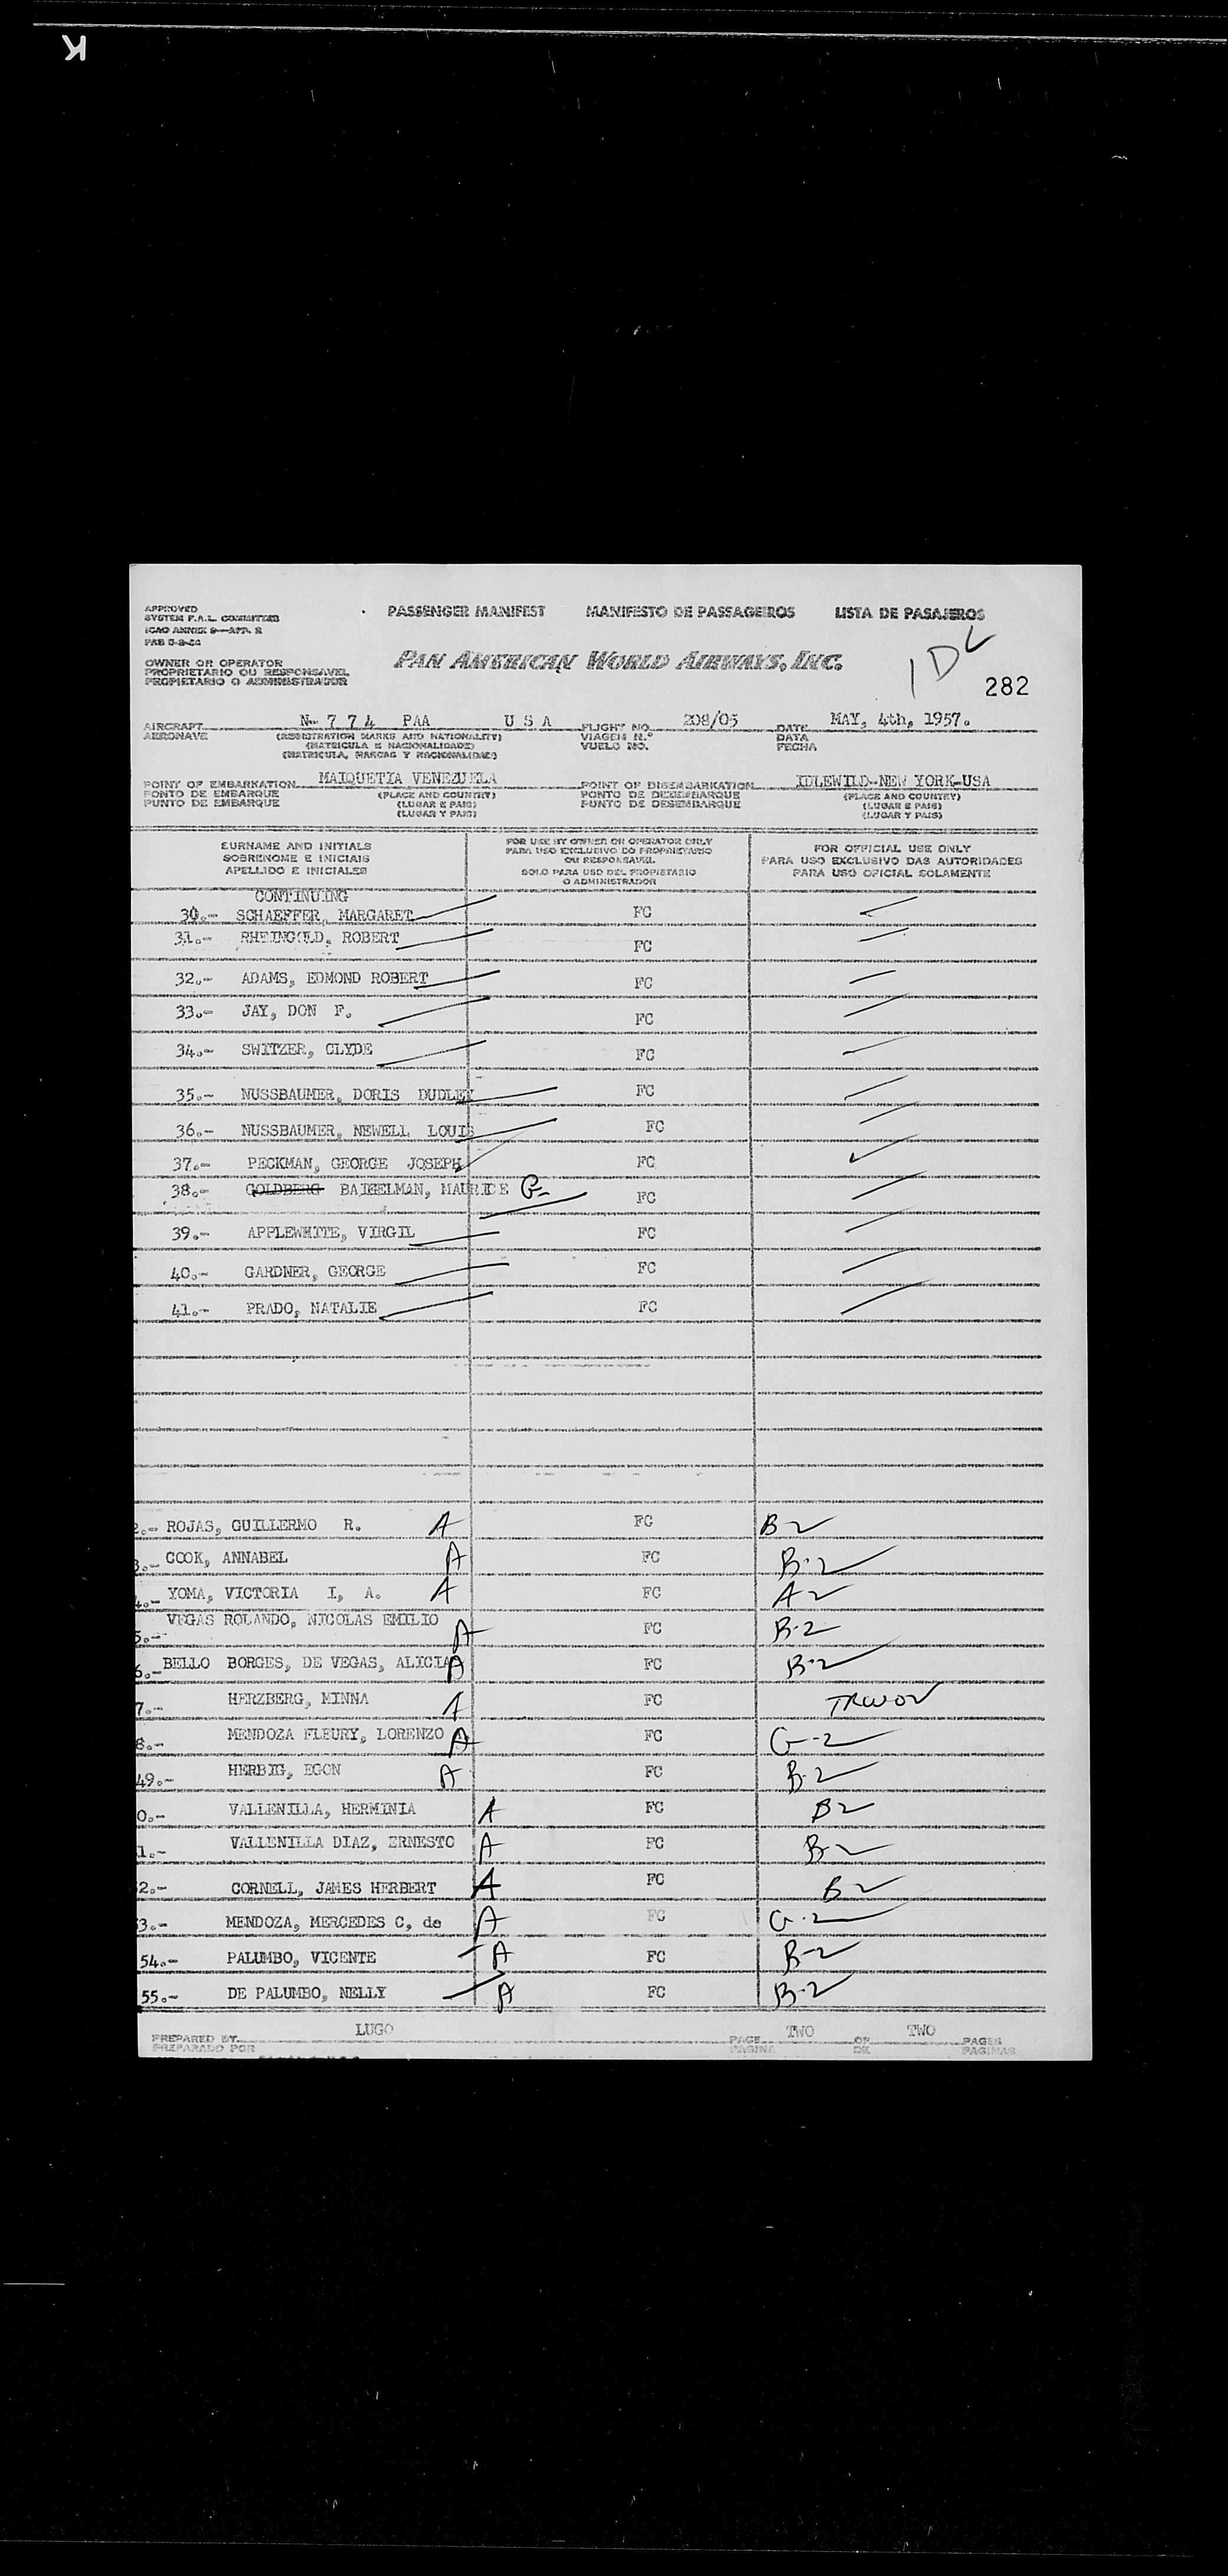 K
APPROVED
SYSTEM F.A.L. COMMITTEE
ICAO ANNEX 9—APP. 2
PASSENGER MANIFEST MANIFESTO DE PASSAGEIROS LISTA DE PASAJEROS
OWNER OR OPERATOR
PROPRIETARIO OU RESPONSAVEL
PROPIETARIO O ADMINISTRADOR
PAN AMERICAN WORLD AIRWAYS, INC.
282
AIRCRAFT N- 7 7 4 PAA U S A FLIGHT NO. 208/05 DATE MAY, 4th, 1957.
AERONAVE (REGISTRATION MARKS AND NATIONALITY) VIAGEM N.º DATA
(MATRICULA E NACIONALIDADE) VUELO NO. FECHA
(MATRICULA, MARCAS Y NACIONALIDAD)
POINT OF EMBARKATION MAIQUETIA VENEZUELA POINT OF DISEMBARKATION IDLEWILD-NEW YORK-USA
PONTO DE EMBARQUE (PLACE AND COUNTRY) PONTO DE DESEMBARQUE (PLACE AND COUNTRY)
PUNTO DE EMBARQUE (LUGAR E PAIS) PUNTO DE DESEMBARQUE (LUGAR E PAIS)
(LUGAR Y PAIS) (LUGAR Y PAIS)
SURNAME AND INITIALS FOR USE BY OWNER OR OPERATOR ONLY FOR OFFICIAL USE ONLY
SOBRENOME E INICIAIS PARA USO EXCLUSIVO DO PROPRIETARIO PARA USO EXCLUSIVO DAS AUTORIDADES
APELLIDO E INICIALES OU RESPONSAVEL PARA USO OFICIAL SOLAMENTE
SOLO PARA USO DEL PROPIETARIO
O ADMINISTRADOR
CONTINUING
30.- SCHAEFFER, MARGARET FC
31.- RHEINGOLD, ROBERT FC
32.- ADAMS, EDMOND ROBERT FC
33.- JAY, DON F. FC
34.- SWITZER, CLYDE FC
35.- NUSSBAUMER, DORIS DUDLEY FC
36.- NUSSBAUMER, NEWELL LOUIS FC
37.- PECKMAN, GEORGE JOSEPH FC
38.- GOLDBERG MAURICE G- FC
39.- APPLEWHITE, VIRGIL FC
40.- GARDNER, GEORGE FC
41.- PRADO, NATALIE FC
2.- ROJAS, GUILLERMO R. A FC B2
3.- COOK, ANNABEL A FC B-2
4.- YOMA, VICTORIA I, A. A FC A2
5.- VEGAS ROLANDO, NICOLAS EMILIO A FC B-2
6.- BELLO BORGES, DE VEGAS, ALICIA A FC B-2
7.- HERZBERG, MINNA A FC TRWOV
8.- MENDOZA FLEURY, LORENZO A FC G-2
49.- HERBIG, EGON A FC B-2
0.- VALLENILLA, HERMINIA A FC B2
1.- VALLENILLA DIAZ, ERNESTO A FC B-2
2.- CORNELL, JAMES HERBERT A FC B2
3.- MENDOZA, MERCEDES C, de A FC G-2
54.- PALUMBO, VICENTE A FC B-2
55.- DE PALUMBO, NELLY A FC B-2
PREPARED BY LUGO PAGE TWO OF TWO PAGES
PREPARADO POR PAGINA DE PAGINAS